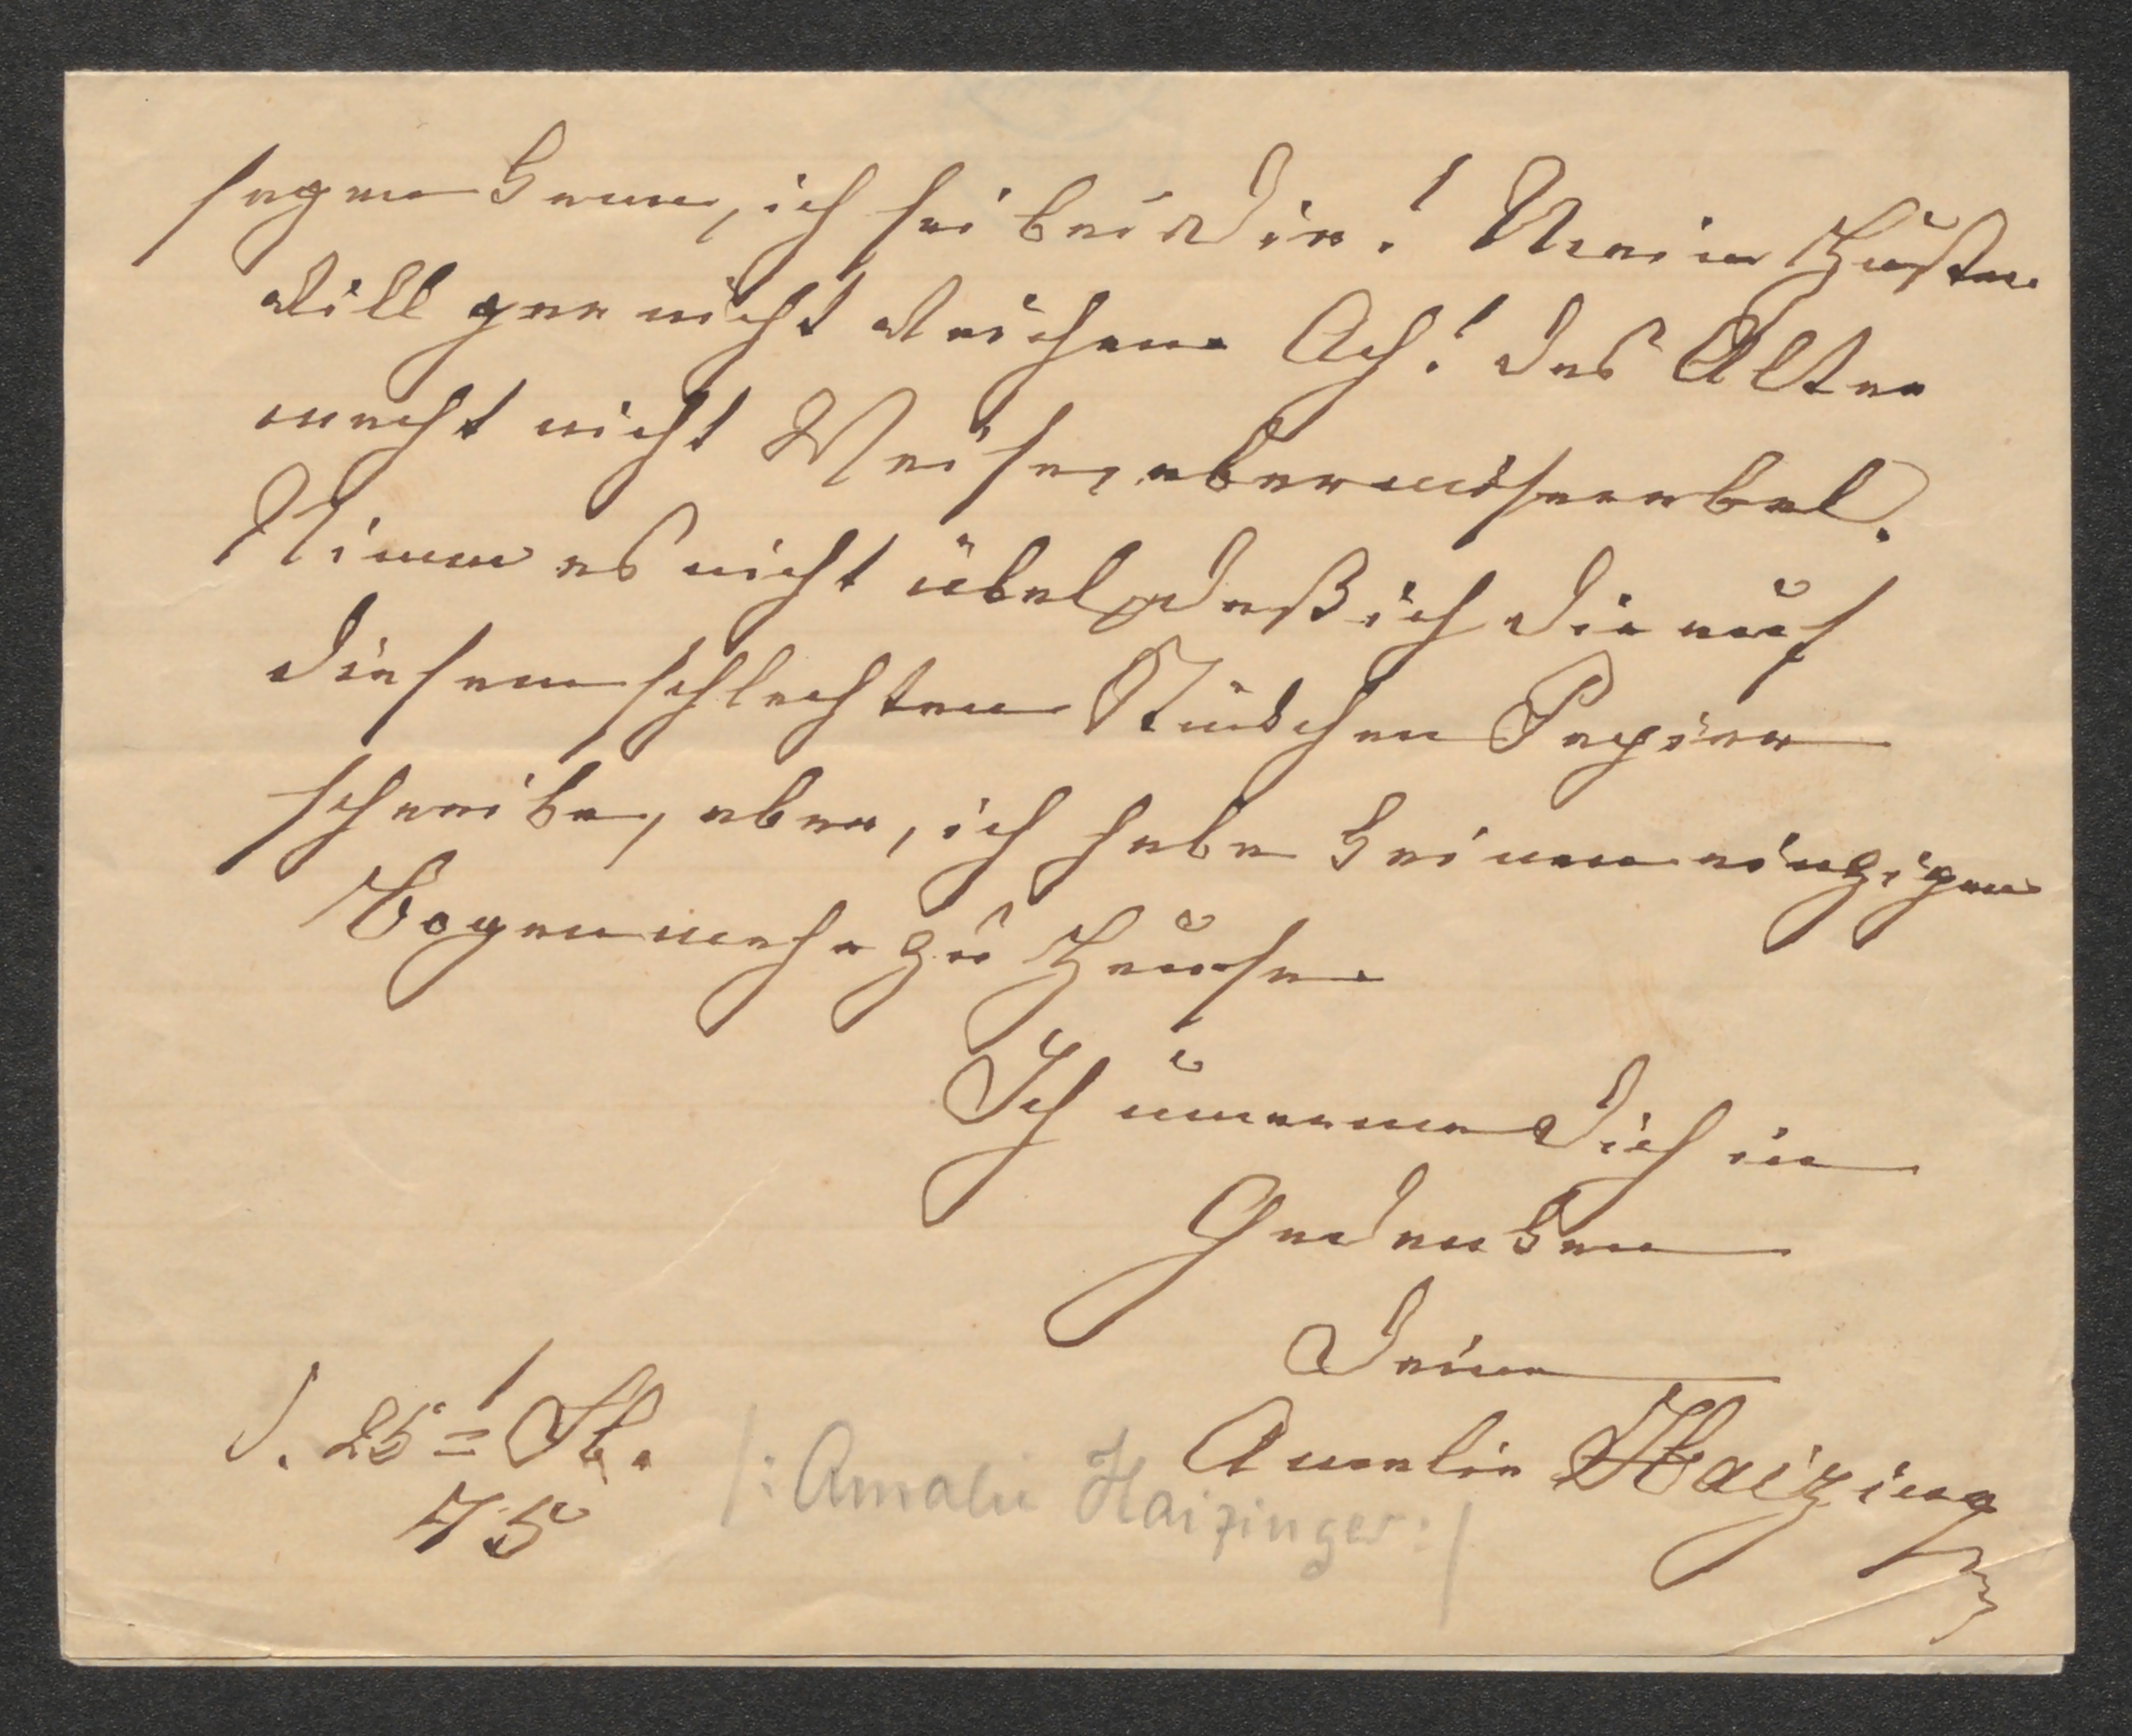 sagen kann, ich sei bei Dir! Mein Husten
will gar nicht weichen Ach! das Alter
macht nicht Weise, aber miserabel.
Nimm es nicht übel, daß ich Dir auf
diesem schlechten Stückchen Papier
schreibe, aber, ich habe keinen einzigen
Bogen mehr zu Hause
Ich umarme Dich in
Gedanken
Deine
Amalie Haizinger
d. 25=
75
/: Amalie Haizinger :/